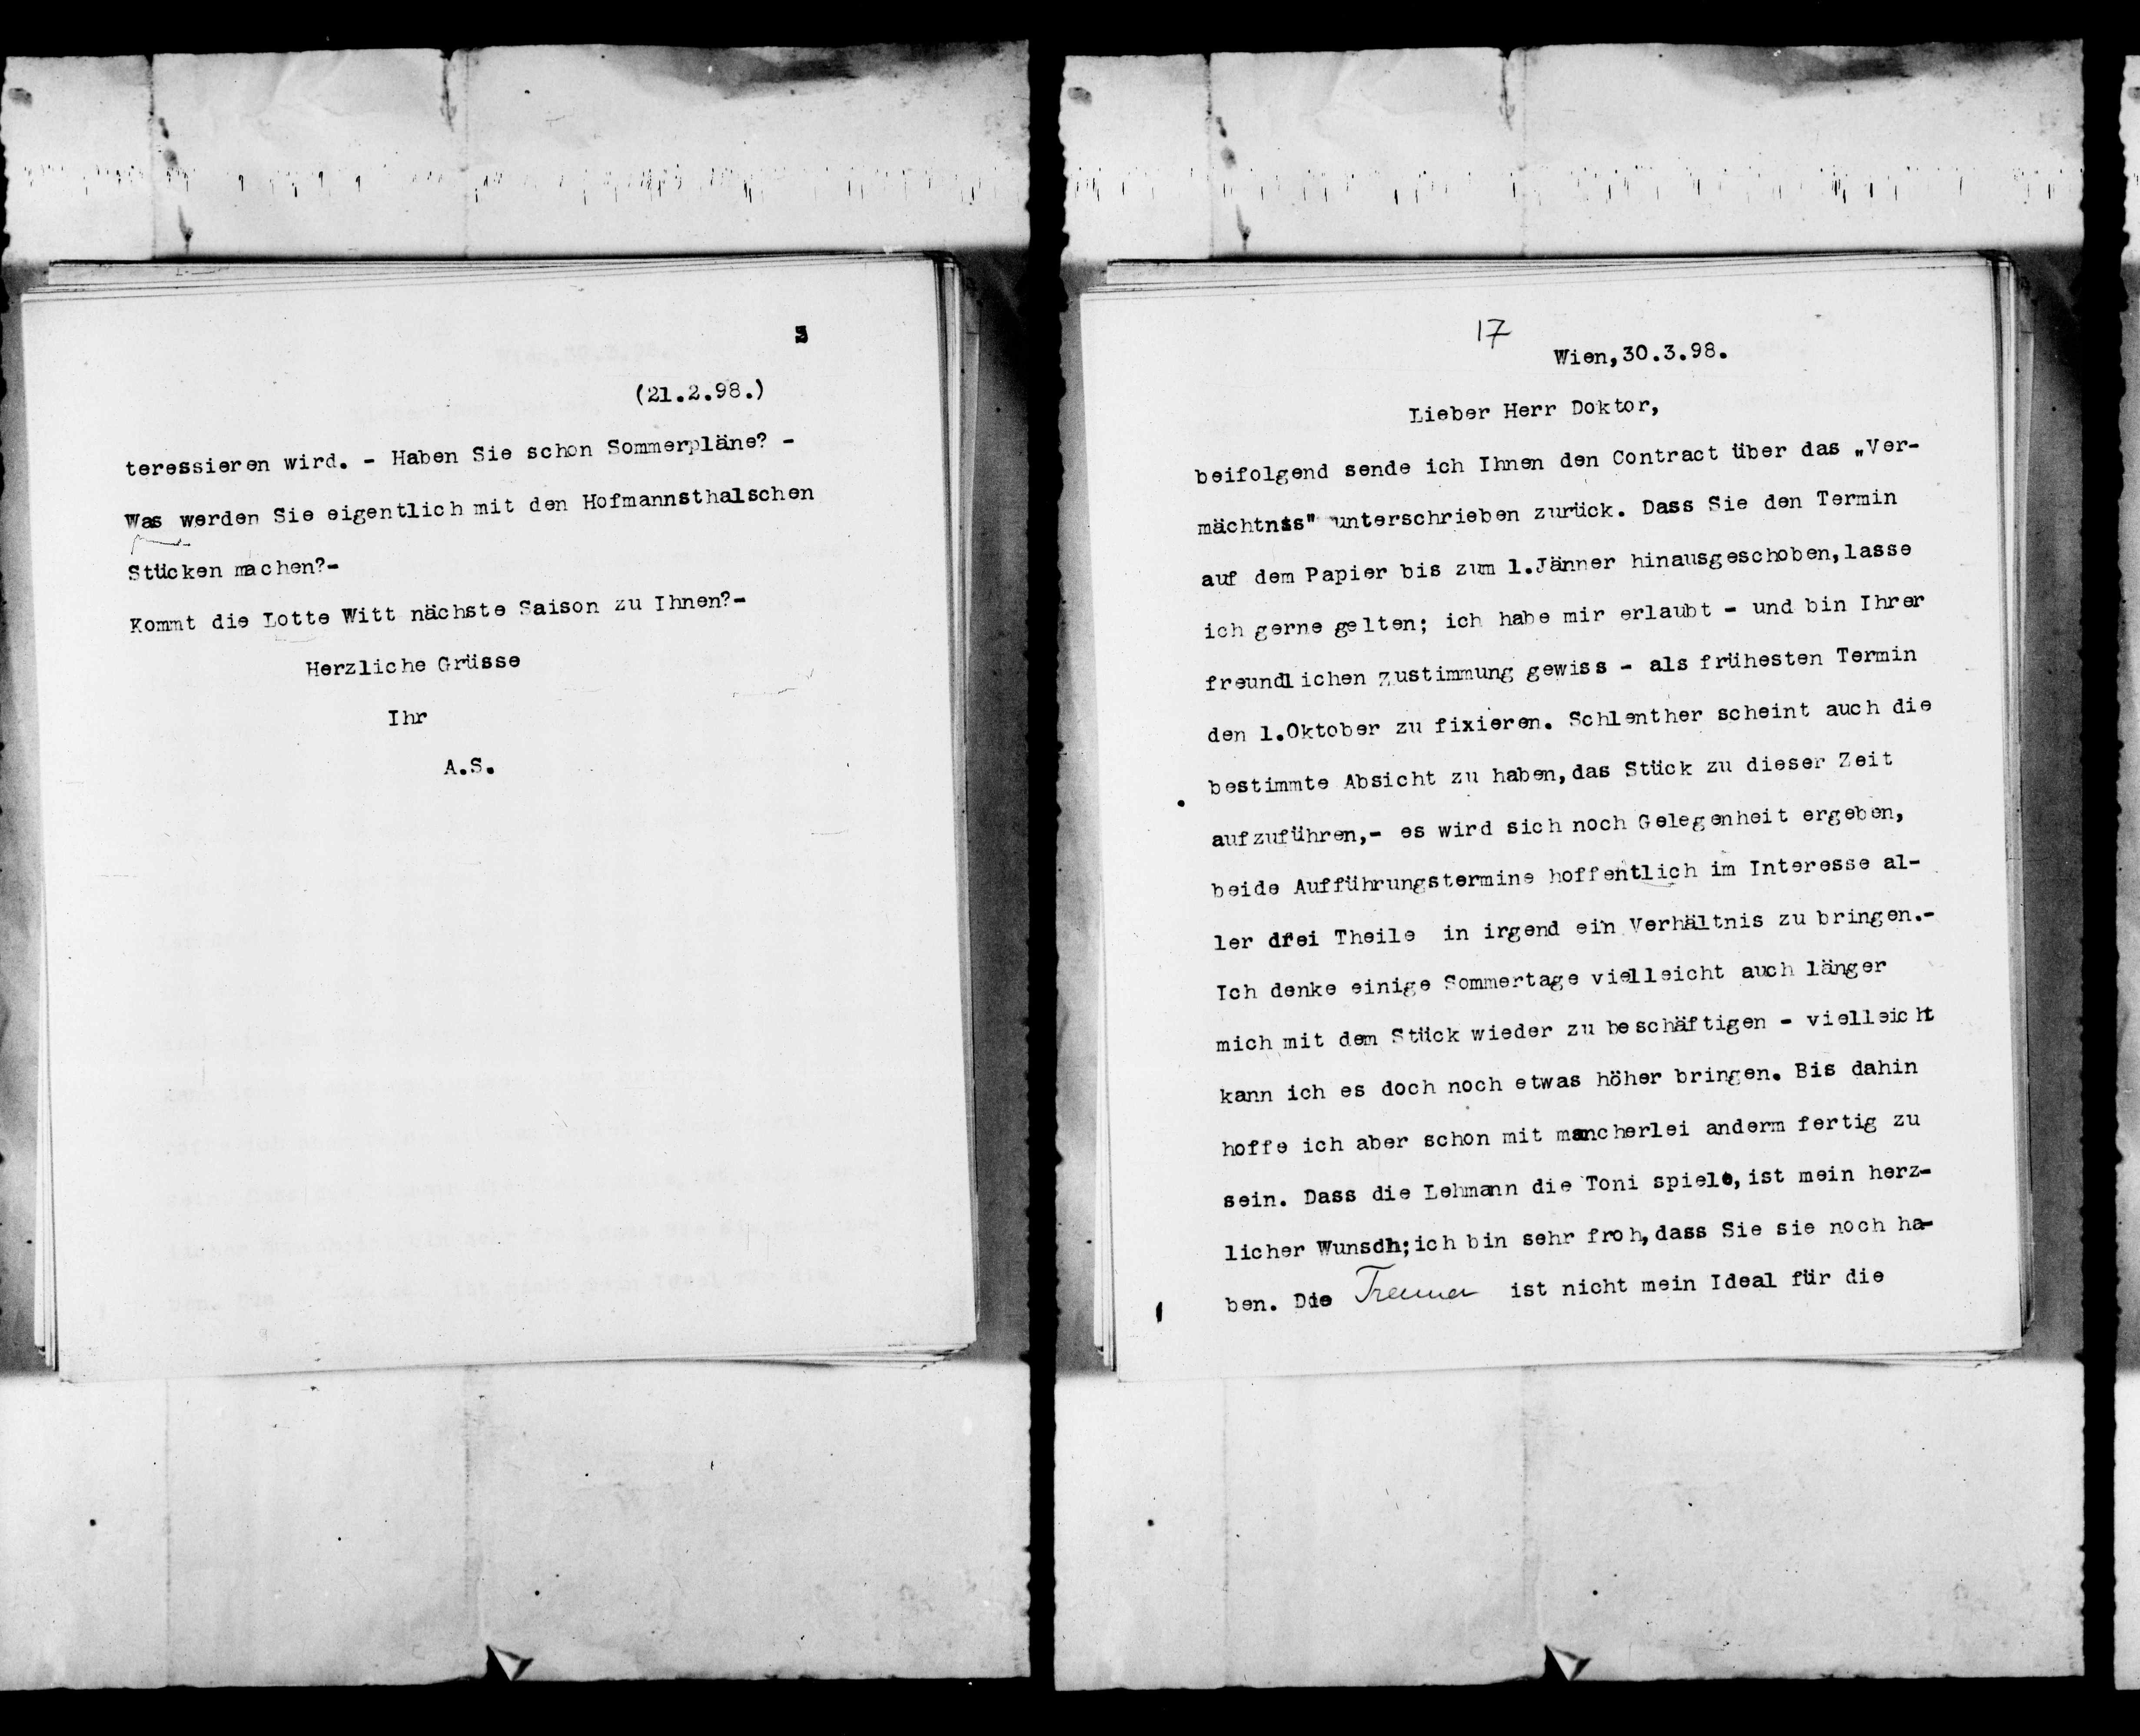 3
(21.2.98.)
teressieren wird. - Haben Sie schon Sommerpläne? -
Was werden Sie eigentlich mit den Hofmannsthalschen
Stücken machen?-
Kommt die Lotte Witt nächste Saison zu Ihnen?-
Herzliche Grüsse
Ihr
A.S.
17
Wien,30.3.98.
Lieber Herr Doktor,
beifolgend sende ich Ihnen den Contract über das „Ver-
mächtnis" unterschrieben zurück. Dass Sie den Termin
auf dem Papier bis zum 1.Jänner hinausgeschoben,lasse
ich gerne gelten; ich habe mir erlaubt - und bin Ihrer
freundlichen Zustimmung gewiss - als frühesten Termin
den 1.Oktober zu fixieren. Schlenther scheint auch die
bestimmte Absicht zu haben,das Stück zu dieser Zeit
aufzuführen,- es wird sich noch Gelegenheit ergeben,
beide Aufführungstermine hoffentlich im Interesse al-
ler drei Theile in irgend ein Verhältnis zu bringen.-
Ich denke einige Sommertage vielleicht auch länger
mich mit dem Stück wieder zu beschäftigen - vielleicht
kann ich es doch noch etwas höher bringen. Bis dahin
hoffe ich aber schon mit mancherlei anderm fertig zu
sein. Dass die Lehmann die Toni spiele,ist mein herz-
licher Wunsch;ich bin sehr froh,dass Sie sie noch ha-
ben. Die ist nicht mein Ideal für die